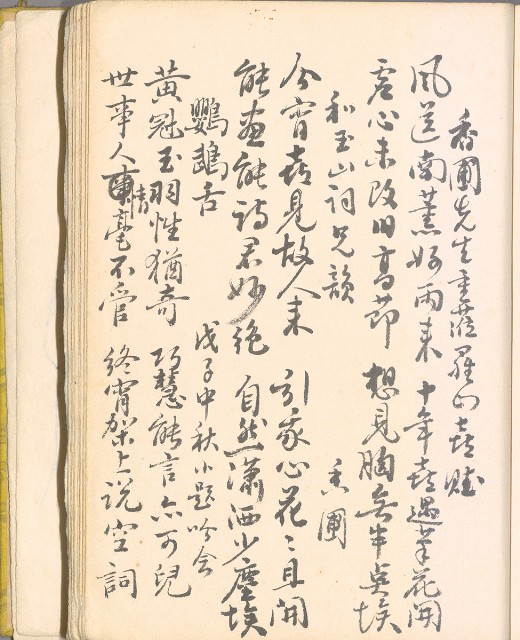 香圃先生重蒞羅山喜賦
風送南薰好雨来 十年喜遇筆花開
虛心未改旧高節 想見胸無半点埃
和玉山詞兄韻 香圃
今宵喜見故人来 引我心花〻且開
能畫能詩君妙絶 自然瀟洒少塵埃
鸚鵡舌 戊子中秋小題吟会
黃冠玉羽性猶奇 巧慧能言亦可兒
世事人情毫不管 終宵架上説空詞